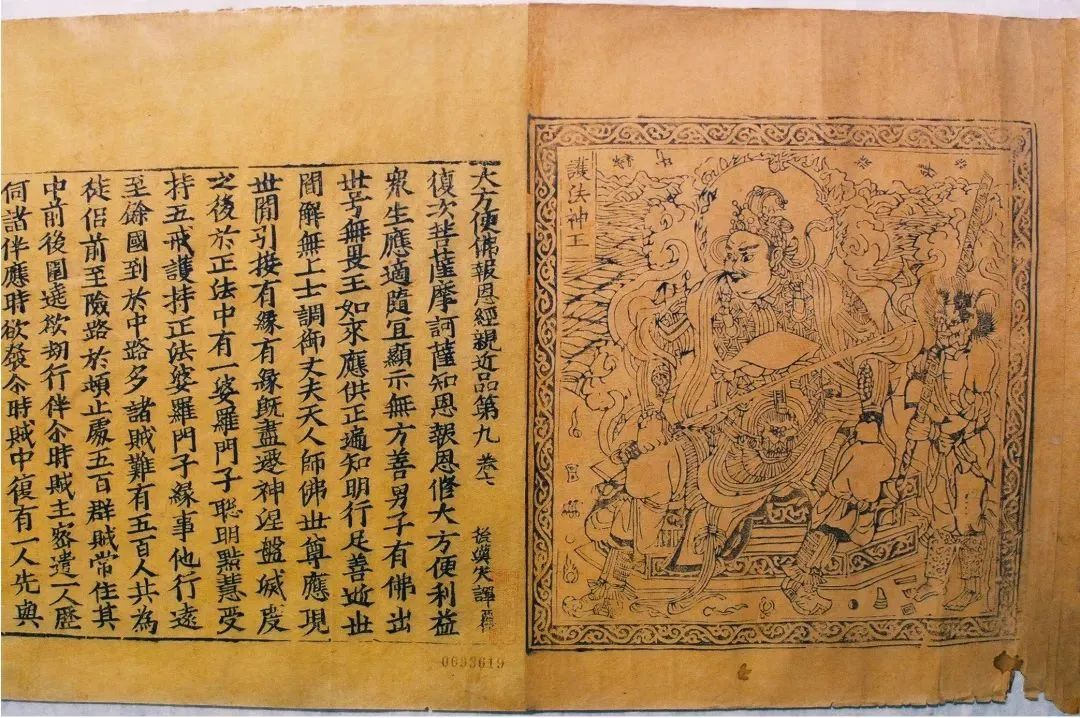 護法神王
大方便佛報恩經親近品第九 卷七 後漢失譯
復次菩薩摩訶薩知恩報恩修大方便利益
衆生應適隨宜顯示無方善男子有佛出
世号無畏王如來應供正遍知明行足善逝世
間解無上士調御丈夫天人師佛世尊應現
世間引接有緣有緣旣盡遷神涅盤滅度
之後於正法中有一婆羅門子聡明黠慧受
持五戒護持正法婆羅門子緣事他行遠
至餘國到於中路多諸賊難有五百人共為
徒侣前至險路於頓止處五百群賊常住其
中前後圍遶欲刼行伴尒時賊主密遣一人歷
伺諸伴應時欲發尒時賊中復有一人先與
0693619